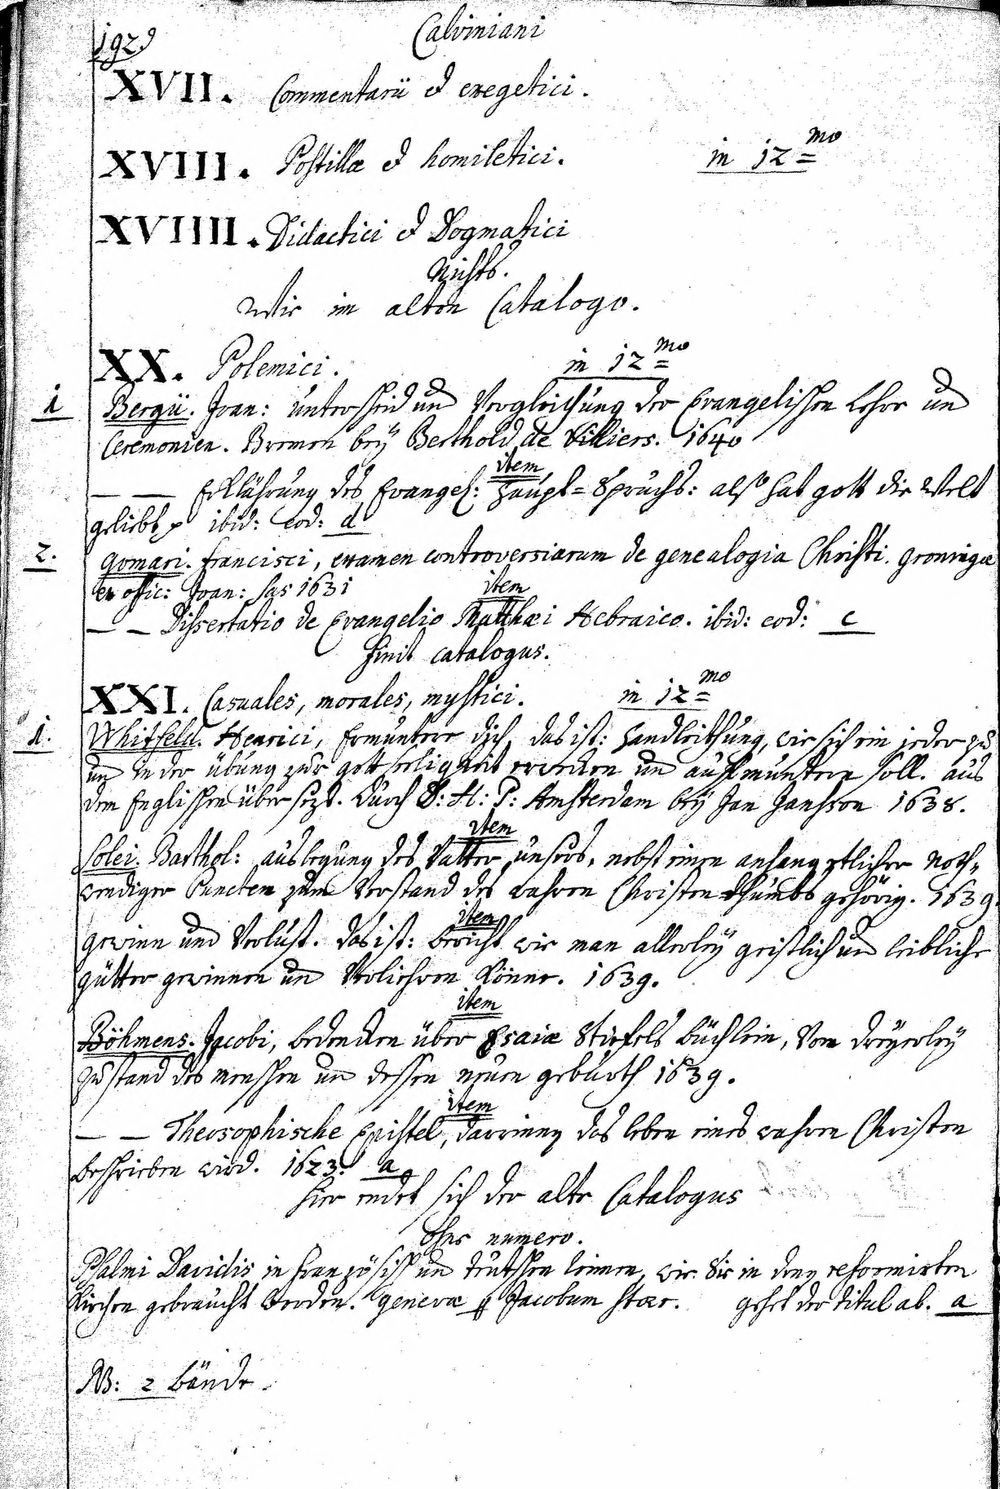 1929 Calviniani
XVII. Commentarii et exegetici.
XVIII. Postillæ et homiletici. in 12=mo
XVIIII. Didactici et Dogmatici
Nichts.
Wie im alten Catalogo.
XX. Polemici. in 12=mo
1 Bergii. Joan: unterscheid und Vergleichung der Evangelischen Lehre und
Ceremonien. Bremen beÿ Berthold de Villiers. 1640
item
— — Erklährung des Evangel: Haupt=Spruchs: also hat gott die Welt
geliebt ibid: eod: d
2. Gomari. Francisci, examen controversiarum de genealogia Christi. Groningæ
ex offic: Joan: Sas 1631
item
— — Dissertatio de Evangelio Matthæi Hebraico. ibid: eod: c
finit catalogus.
XXI. Casuales, morales, mystici. in 12=mo
1. Whitfeld. Henrici, Ermuntere dich, das ist: Handleithung, wie sich ein jeder zu
und in der übung zur gottseligkeit erwecken und auffmuntern soll. aus
dem Englischen übersezt. durch D: H: P: Amsterdam beÿ Jan Janßon 1638.
item
Solei. Barthol: auslegung des Vatter unsers, nebst einem anhang etlicher noth=
wendiger Puncten zum Verstand des wahren Christenthumbs gehörig. 1639.
item
Gewinn und Verlust. das ist: bericht wie man allerleÿ geistlich und leibliche
gütter gewinnen und Verliehren könne. 1639.
item
Böhmens. Jacobi, bedencken über Esaiæ Stiefels büchlein, Von dreÿerleÿ
zustand des menschen und dessen neuen geburth 1639.
item
— — Theosophische Epistel, darinnen das leben eines wahren Christen
beschrieben wird. 1623. a
hier endet sich der alte Catalogus
Ohne numero.
Psalmi Davidis in französisch und teutschen reimen, wie Sie in denen reformirten
Kirchen gebraucht werden. Genevæ p Jacobum Stoer. gehet der titul ab. a
NB: 2 bände.